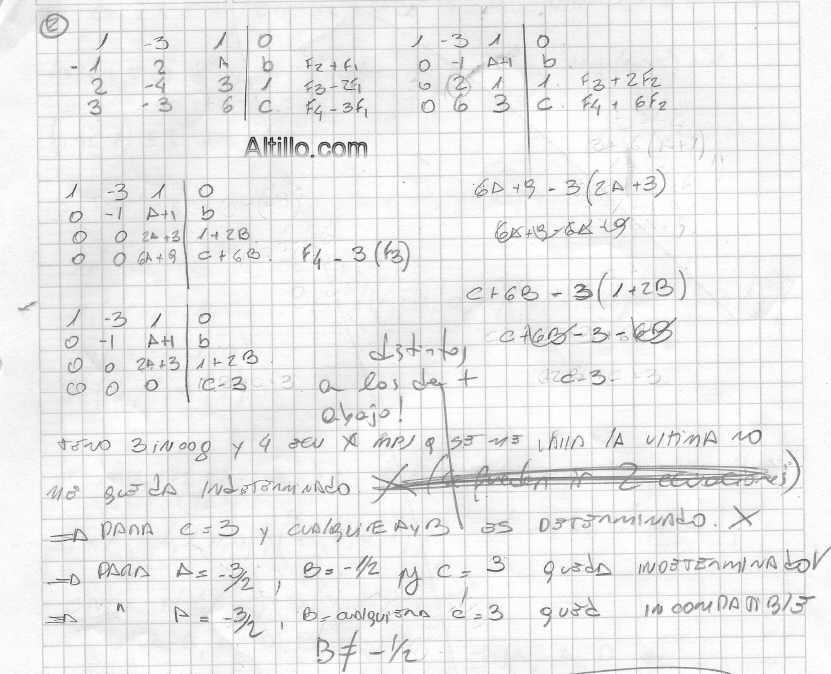 2
1 -3 1 | 0
-1 2 A | b F2+F1
2 -4 3 | 1 F3-2F1
3 -3 6 | C F4-3F1
1 -3 1 | 0
0 -1 A+1 | b
0 2 1 | 1 F3+2F2
0 6 3 | C F4+6F2
Altillo.com
1 -3 1 | 0
0 -1 A+1 | b
0 0 2A+3 | 1+2B
0 0 6A+9 | C+6B F4-3(F3)
6A+9-3(2A+3)
6A+9-6A-9
C+6B-3(1+2B)
C+6B-3-6B
C-3
1 -3 1 | 0
0 -1 A+1 | b
0 0 2A+3 | 1+2B
0 0 0 | C-3
distintos
a los de +
abajo!
TENO 3 incog y 4 ECU X MAS Q SE ME VAYA LA ULTIMA NO
ME QUEDA INDETERMINADO X
⇒ PARA C=3 y CUALQUIE A y B ES DETERMINADO. X
⇒ PARA A=-3/2, B=-1/2 y C=3 QUEDA INDETERMINADO √
⇒ " A=-3/2, B=cualquiera C=3 QUED INCOMPATIBLE
B≠-1/2